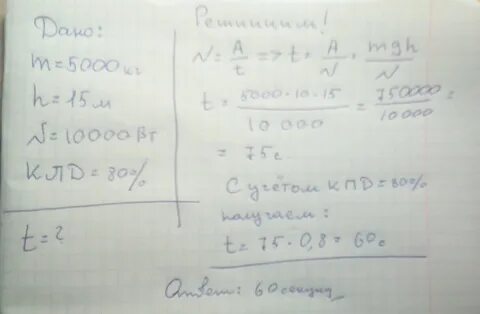 Дано:
m = 5000 кг
h = 15 м
N = 10000 Вт
КПД = 80%
t = ?
Решииим!
N = A/t => t = A/N = mgh/N
t = 5000·10·15/10 000 = 750000/10000 =
= 75 с.
С учётом КПД = 80%
получаем:
t = 75 · 0,8 = 60 с
Ответ: 60 секунд